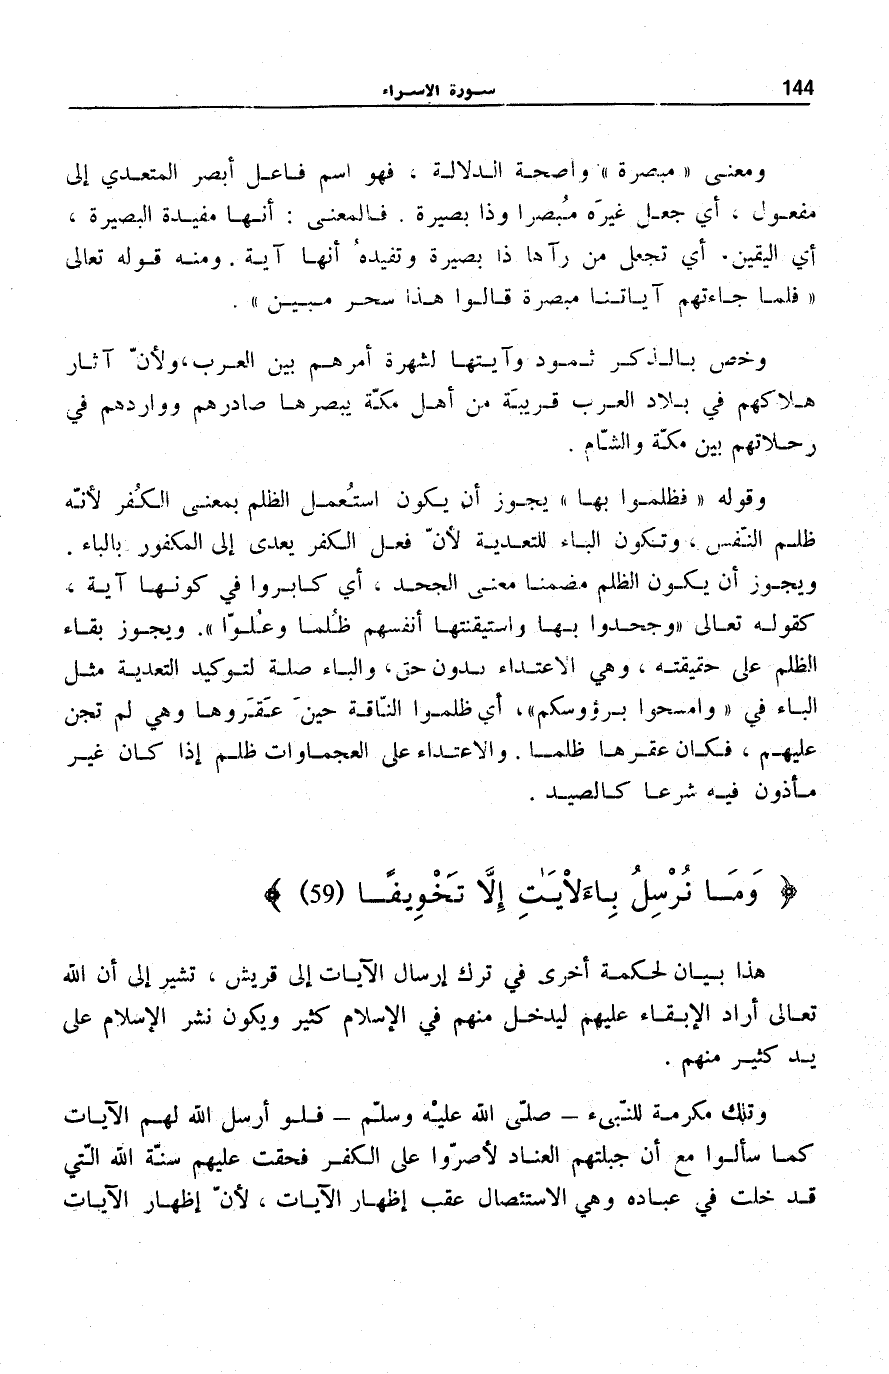 144
سورة الإسراء
ومعنى « مبصرة » واضحة الدلالة ، فهو اسم فاعل أبصر المتعدي إلى
مفعول ، أي جعل غيرَه مُبصرا وذا بصيرة . فالمعنى : أنها مفيدة البصيرة ،
أي اليقين. أي تجعل من رآها ذا بصيرة وتفيدهُ أنها آية . ومنه قوله تعالى
« فلما جاءتهم آياتنا مبصرة قالوا هذا سحر مبين » .
وخص بالذكر ثمود وآيتها لشهرة أمرهم بين العرب،ولأنّ آثار
هلاكهم في بلاد العرب قريبَة من أهل مكّة يبصرها صادرهم وواردهم في
رحلاتهم بين مكّة والشّام .
وقوله « فظلموا بها » يجوز أن يكون استُعمل الظلم بمعنى الكُفر لأنّه
ظلم النّفس ، وتكون الباء للتعدية لأنّ فعل الكفر يعدى إلى المكفور بالباء .
ويجوز أن يكون الظلم مضمنا معنى الجحد ، أي كابروا في كونها آية ،
كقوله تعالى «وجحدوا بها واستيقنتها أنفسهم ظُلما وعُلوّا ». ويجوز بقاء
الظلم على حقيقته ، وهي الاعتداء بدون حق، والباء صلة لتوكيد التعدية مثل
الباء في « وامسحوا برؤوسكم»، أي ظلموا النّاقة حينَ عَقَروها وهي لم تجن
عليهم ، فكان عقرها ظلما . والاعتداء على العجماوات ظلم إذا كان غير
مأذون فيه شرعا كالصيد .
﴿ وَمَا نُرْسِلُ بِاءَلاْيَٰتِ إِلَّا تَخْوِيفًا (59) ﴾
هذا بيان لحكمة أخرى في ترك إرسال الآيات إلى قريش ، تشير إلى أن الله
تعالى أراد الإبقاء عليهم ليدخل منهم في الإسلام كثير ويكون نشر الإسلام على
يد كثير منهم .
وتلك مكرمة للنّبيء – صلّى الله عليْه وسلّم – فلو أرسل الله لهم الآيات
كما سألوا مع أن جبلتهم العناد لأصرّوا على الكفر فحقت عليهم سنّة الله الّتي
قد خلت في عباده وهي الاستئصال عقب إظهار الآيات ، لأنّ إظهار الآيات